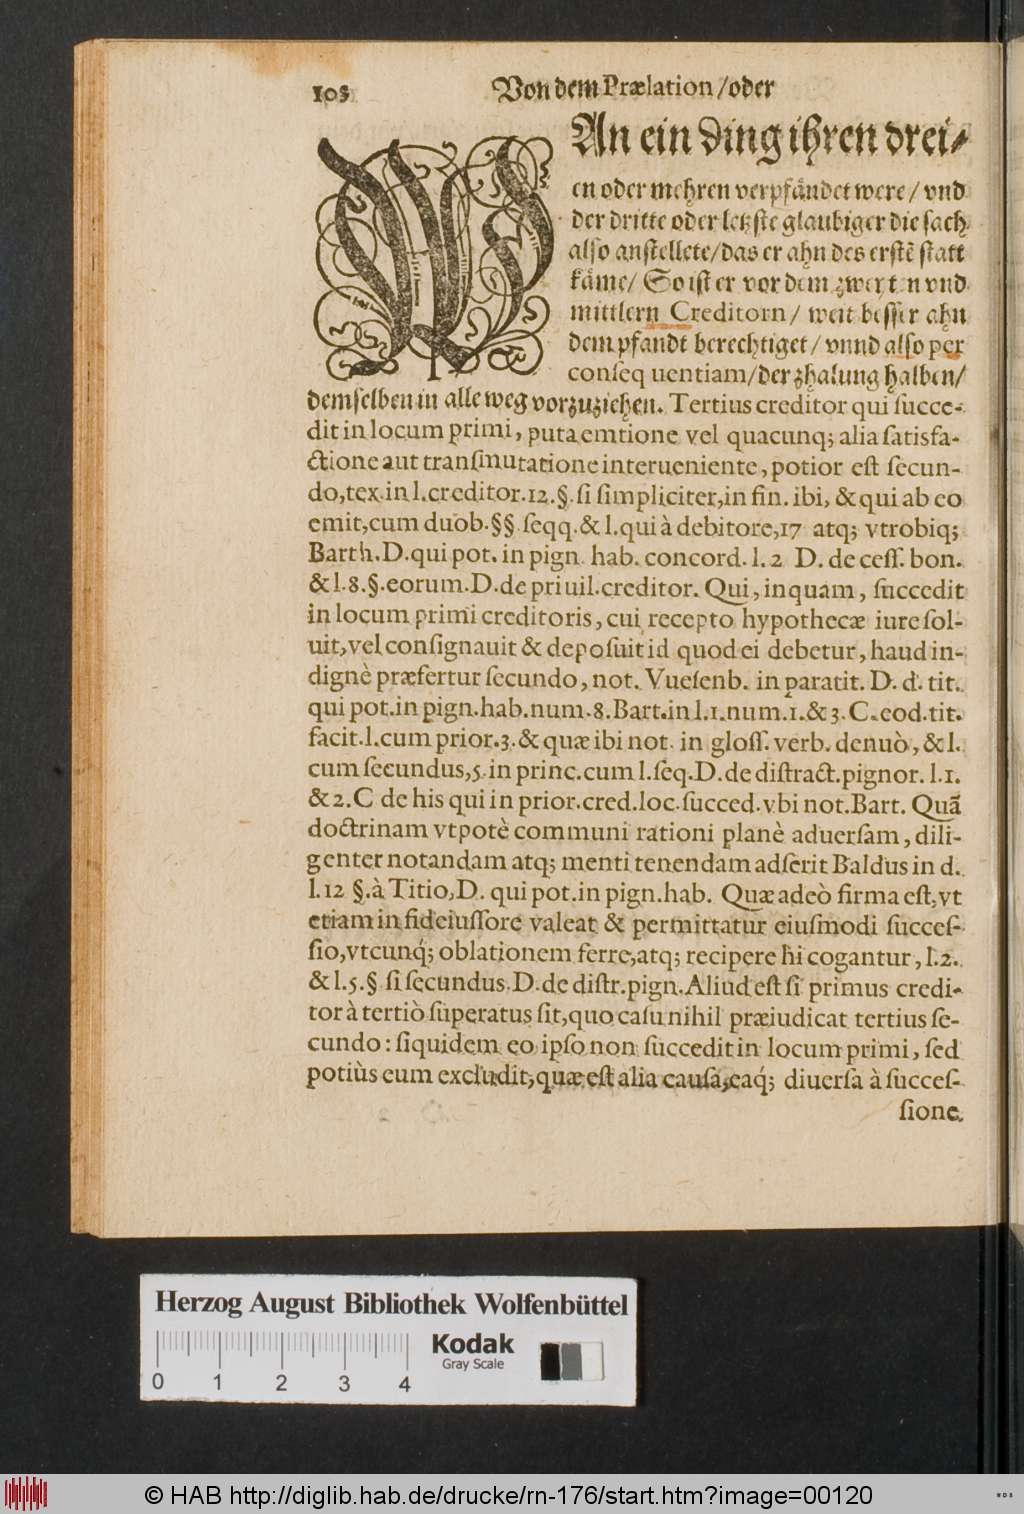 103 Von dem Prælation/oder
WAn ein ding ihren drei⸗
en oder mehren verpfändet were/ vnd
der dritte oder letzste glaubiger die sach
also anstellete/das er ahn des erstẽ statt
käme/ So ist er vor dem zweyten vnd
mittlern Creditorn/ weit besser ahn
dem pfandt berechtiget/ vnnd also per
conseq uentiam/der zhalung halben/
demselben in alle weg vorzuziehen. Tertius creditor qui ſucce-
dit in locum primi, puta emtione vel quacunq; alia ſatisfa-
ctione aut tranſmutatione interueniente, potior eſt ſecun-
do, tex. in l. creditor. 12. §. ſi ſimpliciter, in fin. ibi, & qui ab eo
emit, cum duob. §§. ſeqq. & l. qui à debitore, 17 atq; vtrobiq;
Barth. D. qui pot. in pign hab. concord. l. 2 D. de ceſſ. bon.
& l. 8. §. eorum. D. de priuil. creditor. Qui, inquam, ſuccedit
in locum primi creditoris, cui recepto hypothecæ iure ſol-
uit, vel conſignauit & depoſuit id quod ei debetur, haud in-
dignè præfertur ſecundo, not. Vueſenb. in paratit. D. d. tit.
qui pot. in pign. hab. num. 8. Bart. in l. 1. num. 1. & 3. C. eod. tit.
facit. l. cum prior. 3. & quæ ibi not. in gloſſ. verb. denuò, & l.
cum ſecundus, 5. in princ. cum l. ſeq. D. de diſtract. pignor. l. 1.
& 2. C de his qui in prior. cred. loc. ſucced. vbi not. Bart. Quã
doctrinam vtpotè communi rationi planè aduerſam, dili-
genter notandam atq; menti tenendam adſerit Baldus in d.
l. 12 §. à Titio, D. qui pot. in pign. hab. Quæ adeò firma eſt, vt
etiam in fideiuſſore valeat & permittatur eiuſmodi ſucceſ-
ſio, vtcunq́; oblationem ferre, atq; recipere hi cogantur, l. 2.
& l. 5. § ſi ſecundus. D. de diſtr. pign. Aliud eſt ſi primus credi-
tor à tertiò ſuperatus ſit, quo caſu nihil præiudicat tertius ſe-
cundo: ſiquidem eo ipſo non ſuccedit in locum primi, ſed
potiùs eum excludit, quæ eſt alia cauſa, eaq́; diuerſa à ſucceſ-
ſione.
Herzog August Bibliothek Wolfenbüttel
Kodak
Gray Scale
0 1 2 3 4
© HAB http://diglib.hab.de/drucke/rn-176/start.htm?image=00120